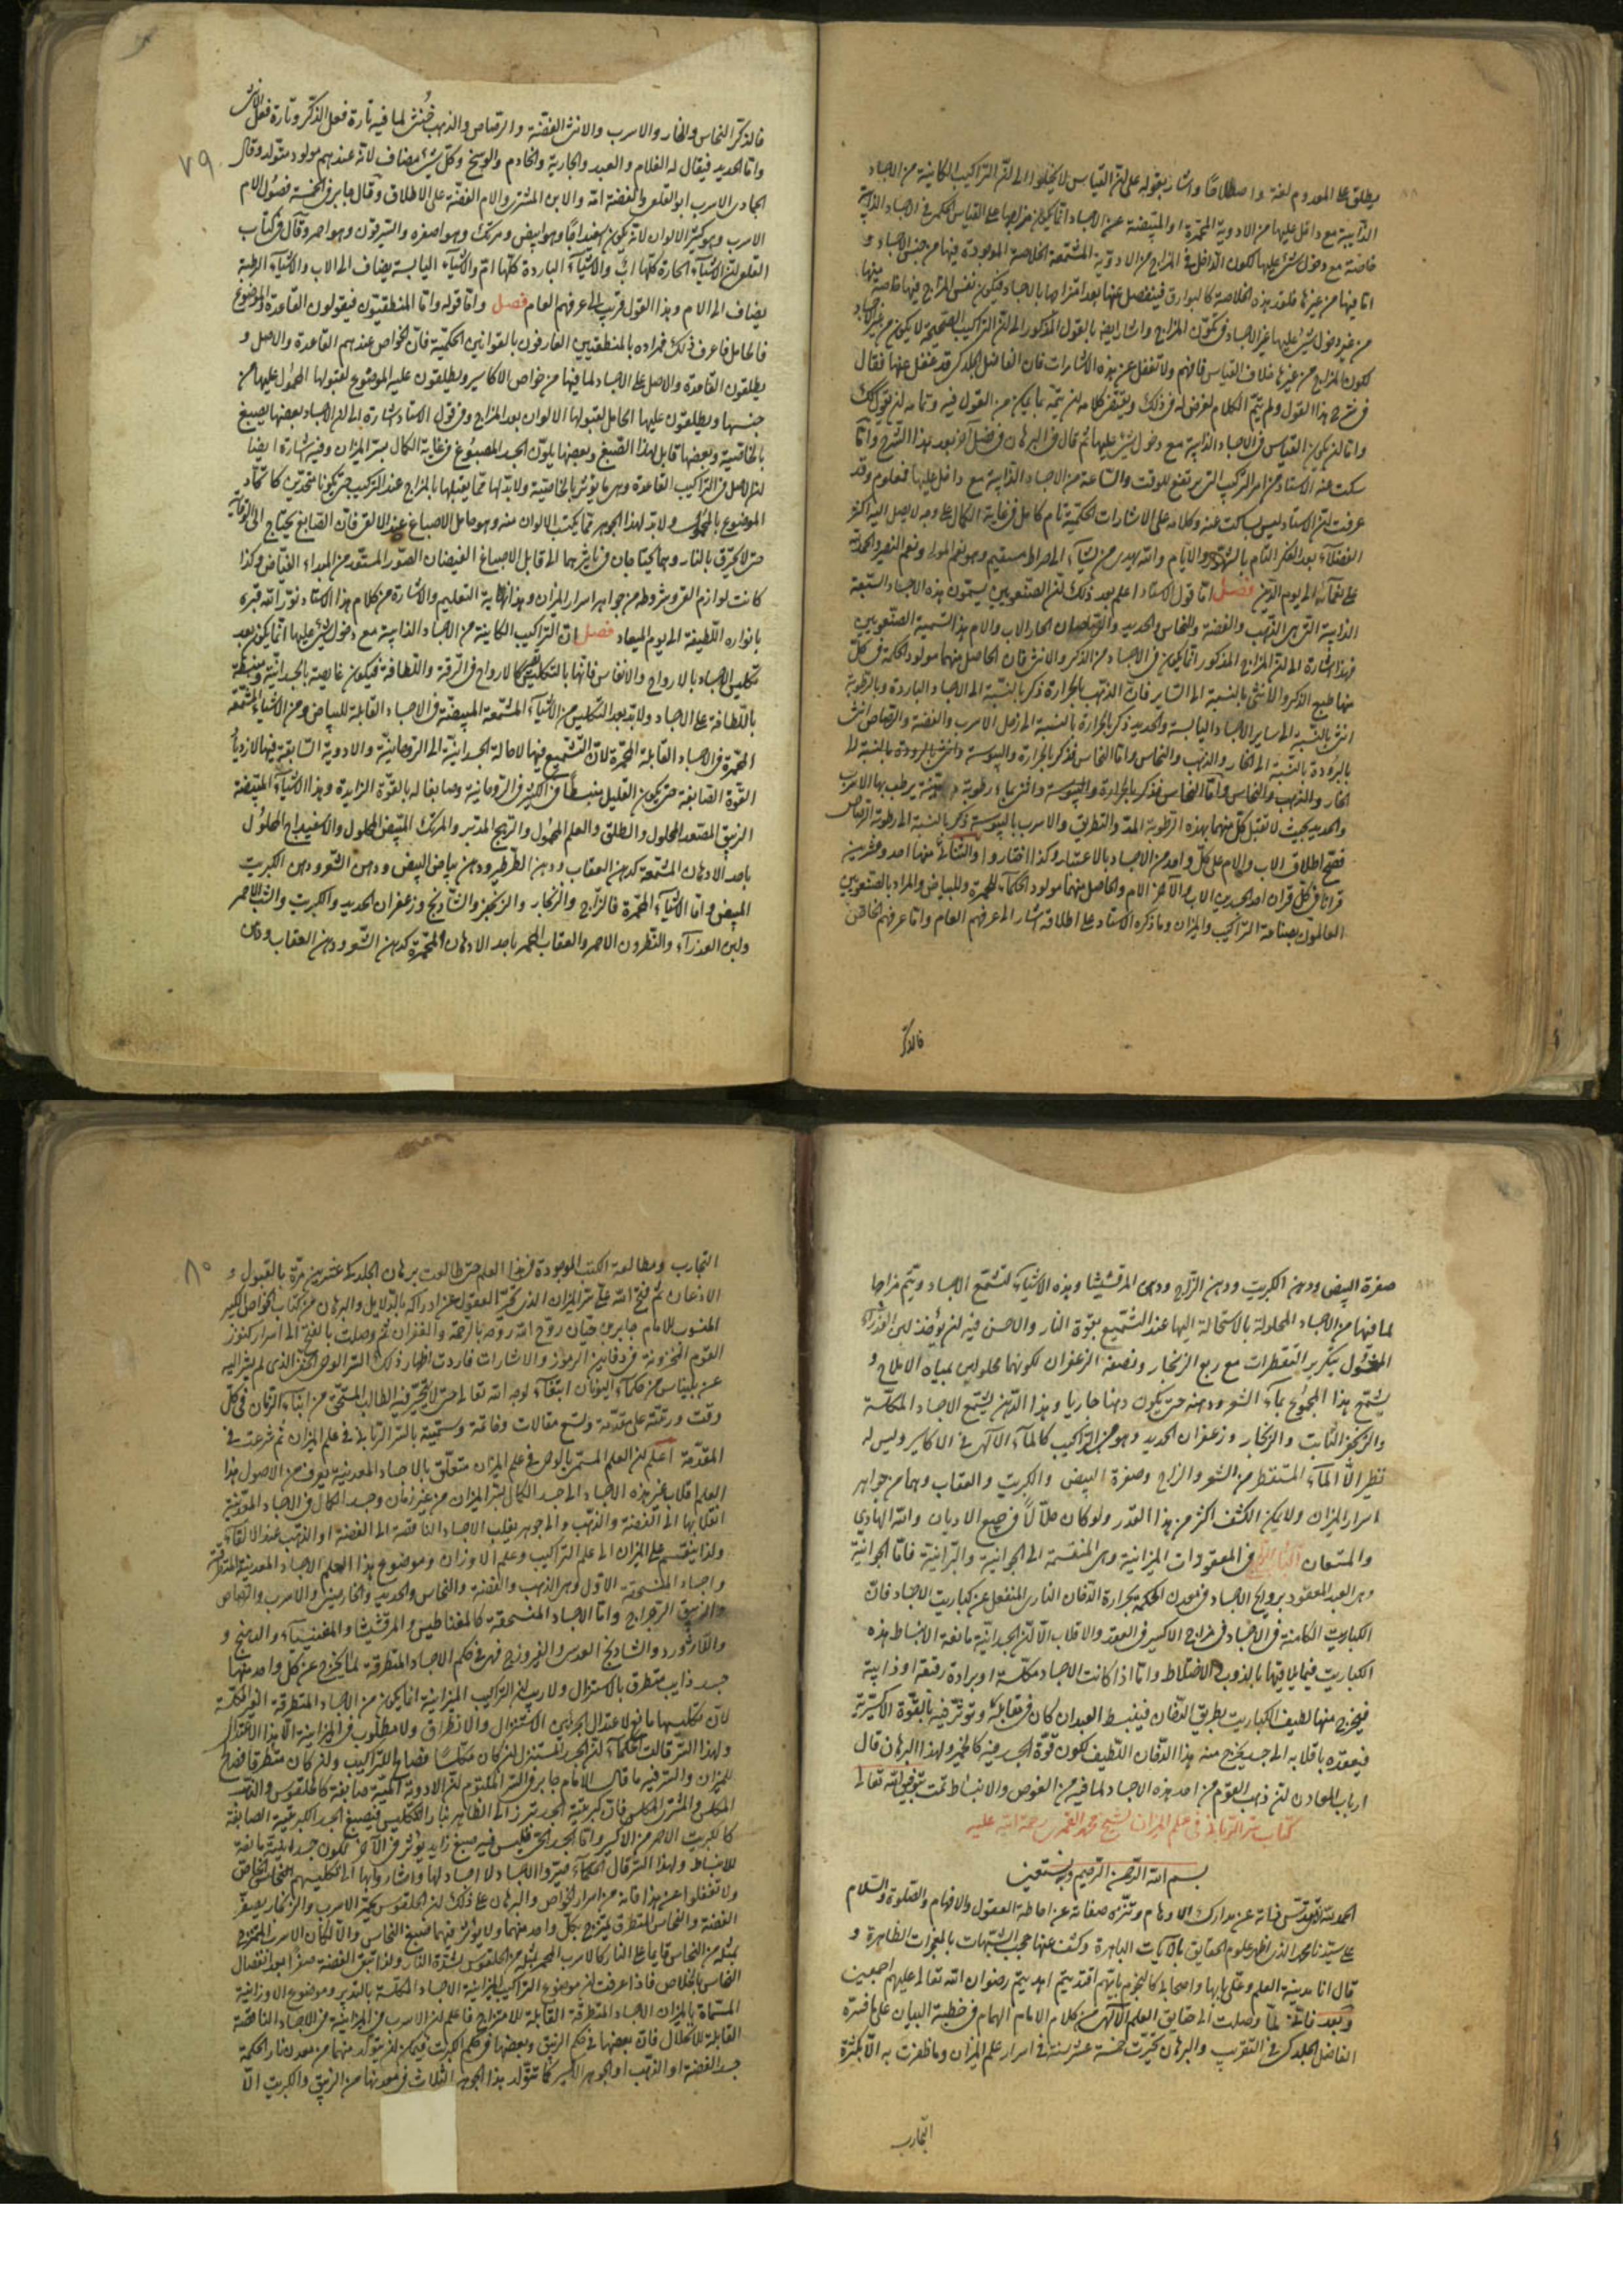 يطلق على المعدوم لغة واصطلاحًا واشار بقوله على لن القياس لا يخلوا الى لن التراكيب الكاينة من الاجساد
الذايبة مع داخل عليها من الادوية المحمرة او المبيضة عن الاجساد انما يكون مزاجها على القياس
خاصة مع دخول شئ عليها لكون الداخل في المزاج من الادوية المشمعة الخلاصة الموجودة فيها من جنس الاجساد و
من غير دخول شئ عليها غير الاجساد في تكون المزاج واشار ايضا بالقول المذكور الى لن التراكيب الصحيحة لا يكون من غير الاجساد
لكون المزاج من غيرها خلاف القياس فافهم ولا تغفل عن هذه الاشارات فان الفاضل الجلدكى قد غفل عنها فقال
في شرح هذا القول ولم يتم الكلام لغرض له في ذلك
واما لن يكون القياس في الاجساد الذايبة مع دخول شئ عليها ثم قال في البرهان في فصل آخر بعد هذا الشرح واما
سكت عنه الاستاد من امر التركيب التى يرتفع للوقت والساعة من الاجساد الذايبة مع داخل عليها فمعلوم وقد
عرفت لن الاستاد ليس بساكت عنه وكلامه على الاشارات الحكمية تام كامل في غاية الكمال على وجه لا يصل اليه اكثر
الفضلاء بعد الفكر التام بالشهور والايام والله يهدى من يشاء الى صراط مستقيم وهو نعم المولى ونعم النصير والحمد لله
على نعمائه الى يوم الدين فصل اما قول الاستاد اعلم بعد ذلك لن الصنعويين يسمون هذه الاجساد السبعة
الذايبة التى هى الذهب والفضة والنحاس والحديد والرصاصان الخار الاب والام بهذا التسمية الصنعويين
فهذا اشارة الى لن المزاج المذكور انما يكون في الاجساد من الذكر والانثى فان الحاصل منهما مولود الحكمة في كل
منها طبع الذكر والانثى بالنسبة الى الساير فان الذهب بالحرارة ذكر بالنسبة الى الاجساد الباردة وبالرطوبة
انثى بالنسبة الى ساير الاجساد اليابسة والحديد ذكر بالحرارة بالنسبة الى زحل الاسرب والفضة والرصاص انثى
بالبرودة بالنسبة الى الخار والذهب والنحاس واما النحاس فذكر بالحرارة واليبوسة وانثى بالبرودة بالنسبة الى
الخار والذهب والنحاس
والحديد بحيث لا تقبل كل منهما بهذه الرطوبة المد والتطريق والاسرب باليبوسة ذكر بالنسبة الى رطوبة الرصاص
فصح اطلاق الاب والام على كل واحد من الاجساد بالاعتبار وكذا اختاروا منها احد وعشرين
قرانا في كل قران احد الجسدين الاب والآخر الام والحاصل منهما مولود الحكماء للحمرة وللبياض والمراد بالصنعويين
العالمون بصناعة التراكيب والميزان وما ذكره الاستاد على اطلاقه اشار الى عرفهم العام واما عرفهم الخاص
فالذكر
٧٩
فالذكر النحاس والخار والاسرب والانثى الفضة والرصاص والذهب خنثى لما فيه تارة فعل الذكر وتارة فعل الانثى
واما الحديد فيقال له الغلام والعبد والجارية والخادم والوسخ وكل شئ مضاف لانه عندهم مولود متولد وقال
الاسرب ابو القلعى والفضة امه والابن المشترى والام الفضة على الاطلاق وقال جابر في الخمسة فصول الام
الاسرب وهو كثير الالوان لانه يكون اسفيداجًا وهو ابيض ومرتك وهو اصفر والسرقون وهو احمر وقال في كتاب
القلعى لن الاشياء الحارة كلها اب والاشياء الباردة كلها ام والاشياء اليابسة يضاف الى الاب والاشياء الرطبة
يضاف الى الام وهذا القول قريب الى عرفهم العام فصل واما قوله واما المنطقيون فيقولون القاعدة والموضوع
فالحامل فاعرف ذلك فمراده بالمنطقيين العارفون بالقوانين الحكمية فان الخواص عندهم القاعدة والاصل و
يطلقون القاعدة والاصل على الاجساد لما فيها من خواص الاكاسير ويطلقون عليه الموضوع لقبولها المحمول عليها من
جنسها ويطلقون عليها الحامل لقبولها الالوان بعد المزاج وفي قول الاستاد اشارة الى لن الاجساد بعضها يصبغ
بالخاصية وبعضها قابل لهذا الصبغ وبعضها يلون الجسد المصبوغ في غاية الكمال بسر الميزان وفيه اشارة ايضا
لن الاصل في التراكيب القاعدة وهى ما يؤثر بالخاصية ولا بد لها مما يقبلها بالمزاج عند التركيب حتى يكونا متحدين كاتحاد
الموضوع بالمحمول ولا بد لهذا الجوهر مما يكتسب الالوان منه وهو حامل الاصباغ
حتى لا يحترق بالنار وهما يحتاجان في تاثيرهما الى قابل الاصباغ الفيضان الصور المستعد من المبداء الفياض وكذا
كانت لوازم القر وشروطه من جواهر اسرار الميزان وهذا نهاية التعليم والاشارة من كلام هذا الاستاد نور الله قبره
بانواره اللطيفة الى يوم الميعاد فصل ان التراكيب الكاينة من الاجساد الذايبة مع دخول شئ عليها انما يكون بعد
تكليس الاجساد بالارواح والانفاس فانها بالتكليس كالارواح في الرقة واللطافة فيكون غايصة بالجسدانية ومنبسطة
باللطافة على الاجساد ولا بد بعد التكليس من الاشياء المشمعة المبيضة في الاجساد القابلة للبياض ومن الاشياء المشمعة
المحمرة في الاجساد القابلة للحمرة لان التشميع فيها لاحالة الجسدانية الى الروحانية والادوية السابقة فيها لازدياد
القوة الصابغة حتى يكون القليل منبسطًا في الكثير في الروحانية وصابغا له بالقوة الزايدة وهذا الاشياء المبيضة
الزيبق المصعد المحلول والطلق والعلم المحمول والزرنيخ المدبر والمرتك المبيض المحلول والاسفيداج المحلول
باحد الادهان المشمعة كدهن العقاب ودهن الطرطير ودهن بياض البيض ودهن الشعر ودهن الكبريت
المبيض واما الاشياء المحمرة فالزاج والزنجار والزنجفر والشاذنج وزعفران الحديد والكبريت والشب الاحمر
ولبن العذراء والنطرون الاحمر والعقاب المحمر باحد الادهان المحمرة كدهن الشعر ودهن العقاب ودهن
صفرة البيض ودهن الكبريت ودهن الزاج ودهن المرقشيشا وهذه الاشياء لتشمع الاجساد ويتم مزاجها
لما فيها من الاجساد المحلولة بالاستحالة اليها عند التشميع بقوة النار والاحسن فيه لن يؤخذ لبن العذراء
المحلول بتكرير التقطرات مع ربع الزنجار ونصف الزعفران لكونهما محلولين بمياه الاملاح و
يشمع هذا المجموع بماء الشعر ودهنه حتى يكون دهنا جاريا وبهذا الدهن يشمع الاجساد المكلسة
والزنجفر الثابت والزنجار وزعفران الحديد وهو من التراكيب كالماء الآلهى في الاكاسير وليس له
نظير الا الماء المتقطر من الشعر والزاج وصفرة البيض والكبريت والعقاب وهما من جواهر
اسرار الميزان ولا يمكن الكشف اكثر من هذا القدر ولو كان حلالًا في جميع الاديان والله الهادى
والمستعان في المعقودات الميزانية وهى المنقسمة الى الجوانية والبرانية فاما الجوانية
وهى العبد المعقود بروايح الاجساد في معدن الحكمة بحرارة الدخان النارى المنفعل عن كباريت الاجساد فان
الكباريت الكامنة في الاجساد في مزاج الاكسير في العقد والاقلاب الا لن الجسدانية مانعة الانبساط هذه
الكباريت فيما يلاقيها بالذوب في الاختلاط واما اذا كانت الاجساد مكلسة او برادة رقيقة او ذايبة
فيخرج منها لطيف الكباريت بطريق الدخان فينبسط العبد ان كان في مقابله وتؤثر فيه بالقوة الاكسيرية
فيعقده باقلابه الى جسد يخرج منه هذا الدخان اللطيف لكون قوة الجسد فيه كالخمير ولهذا البرهان قال
ارباب المعادن لن ذهب القوم من احد هذه الاجساد لما فيه من الغوص والانبساط تمت بتوفيق الله تعالى
كتاب سر الربانى في علم الميزان لشيخ محمد القمرى رحمة الله عليه
بسم الله الرحمن الرحيم وبه نستعين
الحمد لله الذى تقدس ذاته عن مدارك الاوهام وتنزه صفاته عن احاطة العقول والافهام والصلوة والسلام
على سيدنا محمد الذى اظهر علوم الحقايق بالآيات الباهرة وكشف عنها حجب الشبهات بالمعجزات الظاهرة و
قال انا مدينة العلم وعلى بابها واصحابى كالنجوم بايهم اقتديتم اهتديتم رضوان الله تعالى عليهم اجمعين
وبعد فانى لما وصلت الى حقايق العلم الآلهى من كلام الامام الهمام في خطبة البيان على ما فسره
الفاضل الجلدكى في التقريب والبرهان تحيرت خمسة عشر سنة في اسرار علم الميزان وما ظفرت به الا بكثرة
التجارب
٨٠
التجارب ومطالعة الكتب الموجودة في هذا العلم حتى طالعت برهان الجلدكى عشرين مرة بالقبول و
الاذعان ثم فتح الله على سر الميزان الذى تحير العقول عن ادراكه بالدلايل والبرهان من كتاب الخواص الكبير
المنسوب للامام جابر بن حيان روح الله روحه بالرحمة والغفران ثم وصلت بالفتح الى اسرار كنوز
القوم المخزونة في دفاين الرموز والاشارات فاردت اظهار ذلك السر الذى لم يشر اليه
عن بليناس من حكماء اليونان ابتغاء لوجه الله تعالى حتى لا يتحير فيه الطالب المستحق من ابناء الزمان في كل
وقت ورتبته على مقدمة وتسع مقالات وخاتمة وسميته بالسر الربانى في علم الميزان ثم شرعت في
المقدمة اعلم لن العلم المسمى في علم الميزان متعلق بالاجساد المعدنية يعرف من الاصول هذا
العلم اقلاب هذه الاجساد الى جسد الكمال بسر الميزان من غير زمان وجسد الكمال في الاجساد المعدنية
انقلابها الى الفضة والذهب والجوهر يقلب الاجساد الناقصة الى الفضة او الذهب عند الالقاء
ولذا ينقسم علم الميزان الى علم التراكيب وعلم الاوزان وموضوع هذا العلم الاجساد المعدنية المتطرقة
واجساد المنسحقة الاول وهى الذهب والفضة والنحاس والحديد والخارصينى والاسرب والرصاص
والزيبق الرجراج واما الاجساد المنسحقة كالمغناطيس والمرقشيشا والمغنيسيا والدهنج و
واللازورد والشاذنج العدسى والفيروزج فهى في حكم الاجساد المتطرقة لما يخرج عن كل واحد منها
جسد ذايب متطرق بالاستنزال ولا ريب لن التراكيب الميزانية انما يكون من الاجساد المتطرقة الغير المكلسة
لان تكليسها مانع لاعتدال الجزئين الاستنزال والانطراق ولا مطلوب في الميزانية الا هذا الاعتدال
ولهذا السر قالت الحكماء لن الجسد المستنزل لن كان مكلسًا فصالح للتراكيب ولن كان متطرقا فصالح
للميزان والسر فيه ما قال الامام جابر في السر المكتوم لن الادوية الميتة صابغة كالطلقوس والذهب
المكلس والمشترى المكلس فان كبريتية الجسد تبرز الى الظاهر بنار التكليس فيصبغ الجسد الكبريتية الصابغة
كالكبريت الاحمر من الاكسير واما الجسد الحى فليس فيه صبغ زايد يؤثر في الآخر لكون جسدانيته مانعة
للانبساط ولهذا السر قال الحكماء صيروا الاجساد لا اجساد لها واشاروا بها الى تكليسهم
ولا تغفلوا عن هذا فانه من اسرار الخواص والبرهان على ذلك لن الطلقوس يحمر الاسرب والزنجار يصفر
الفضة والنحاس المتطرق يمتزج بكل واحد منهما ولا يؤثر فيهما صبغ النحاس والا لكان الاسرب الممتزج
بمثله من النحاس قايما على النار كالاسرب المحمر بمثله من الطلقوس لشدة النار ولذا تبقى الفضة صفرًا بعد انفصال
النحاس بالخلاص فاذا عرفت لن موضوع التراكيب الميزانية الاجساد المكلسة بالتدبير وموضوع الاوزانية
المسماة بالميزان الاجساد المتطرقة القابلة للامتزاج فاعلم لن الاسرب من الميزانية من الاجساد الناقصة
القابلة للانحلال فان بعضها في حكم الزيبق وبعضها في حكم الكبريت فيمكن لن يتولد منهما من معدن نار الحكمة
جسد الفضة او الذهب او الجوهر الاكسير كما تتولد هذا الجوهر الثلاث في معدنها من الزيبق والكبريت الا